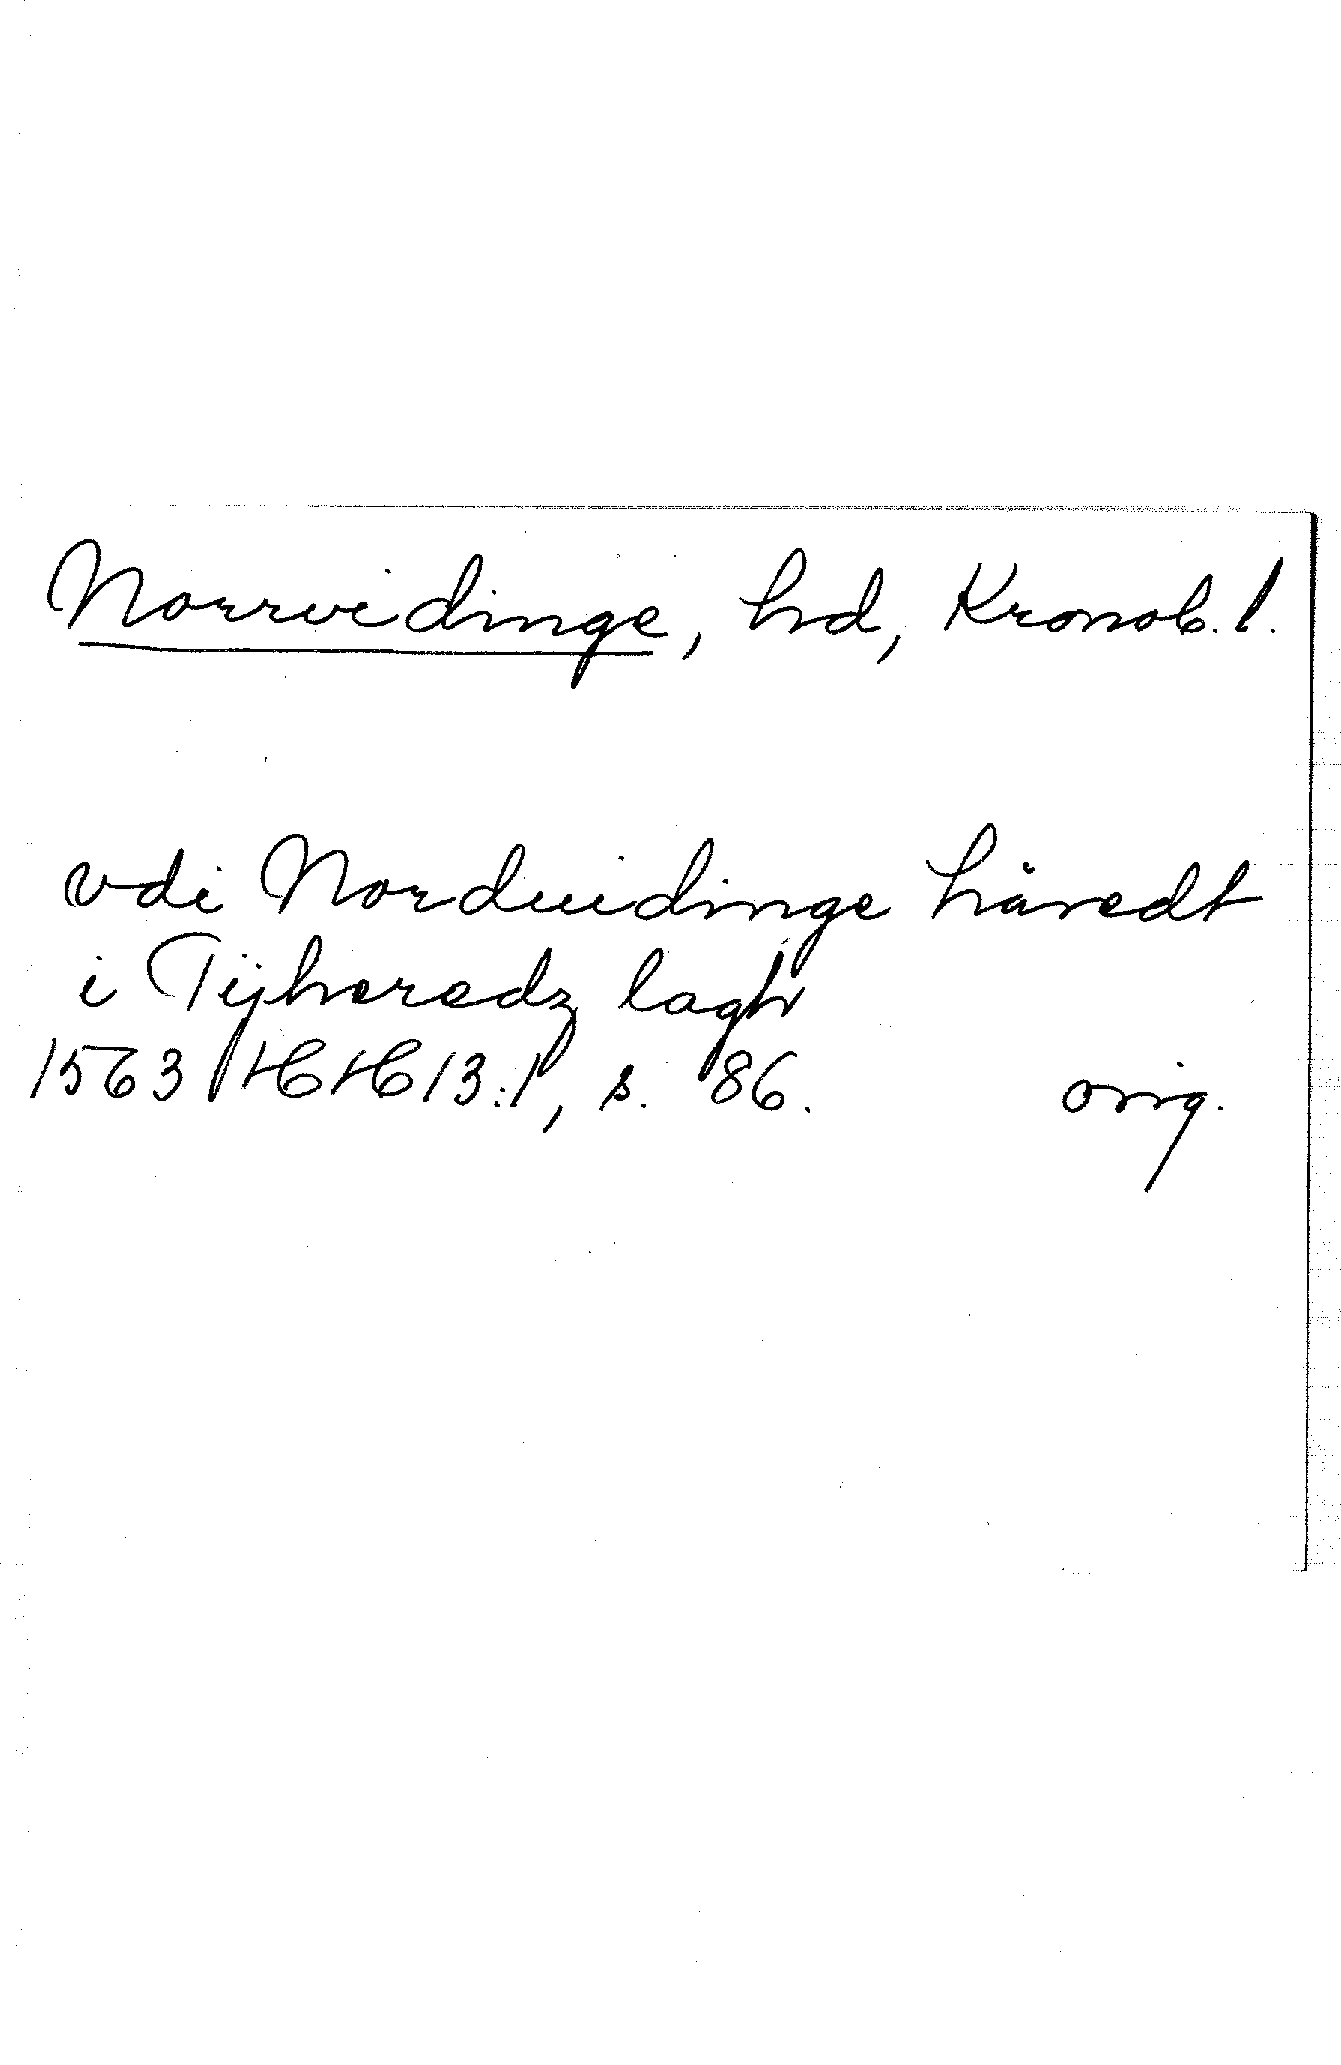 Norrvidinge, hd, Kronob. l.
vdi Norduidinge håredt
i Tijheredz lagh
1563 HH 13:1, s. 86. orig.